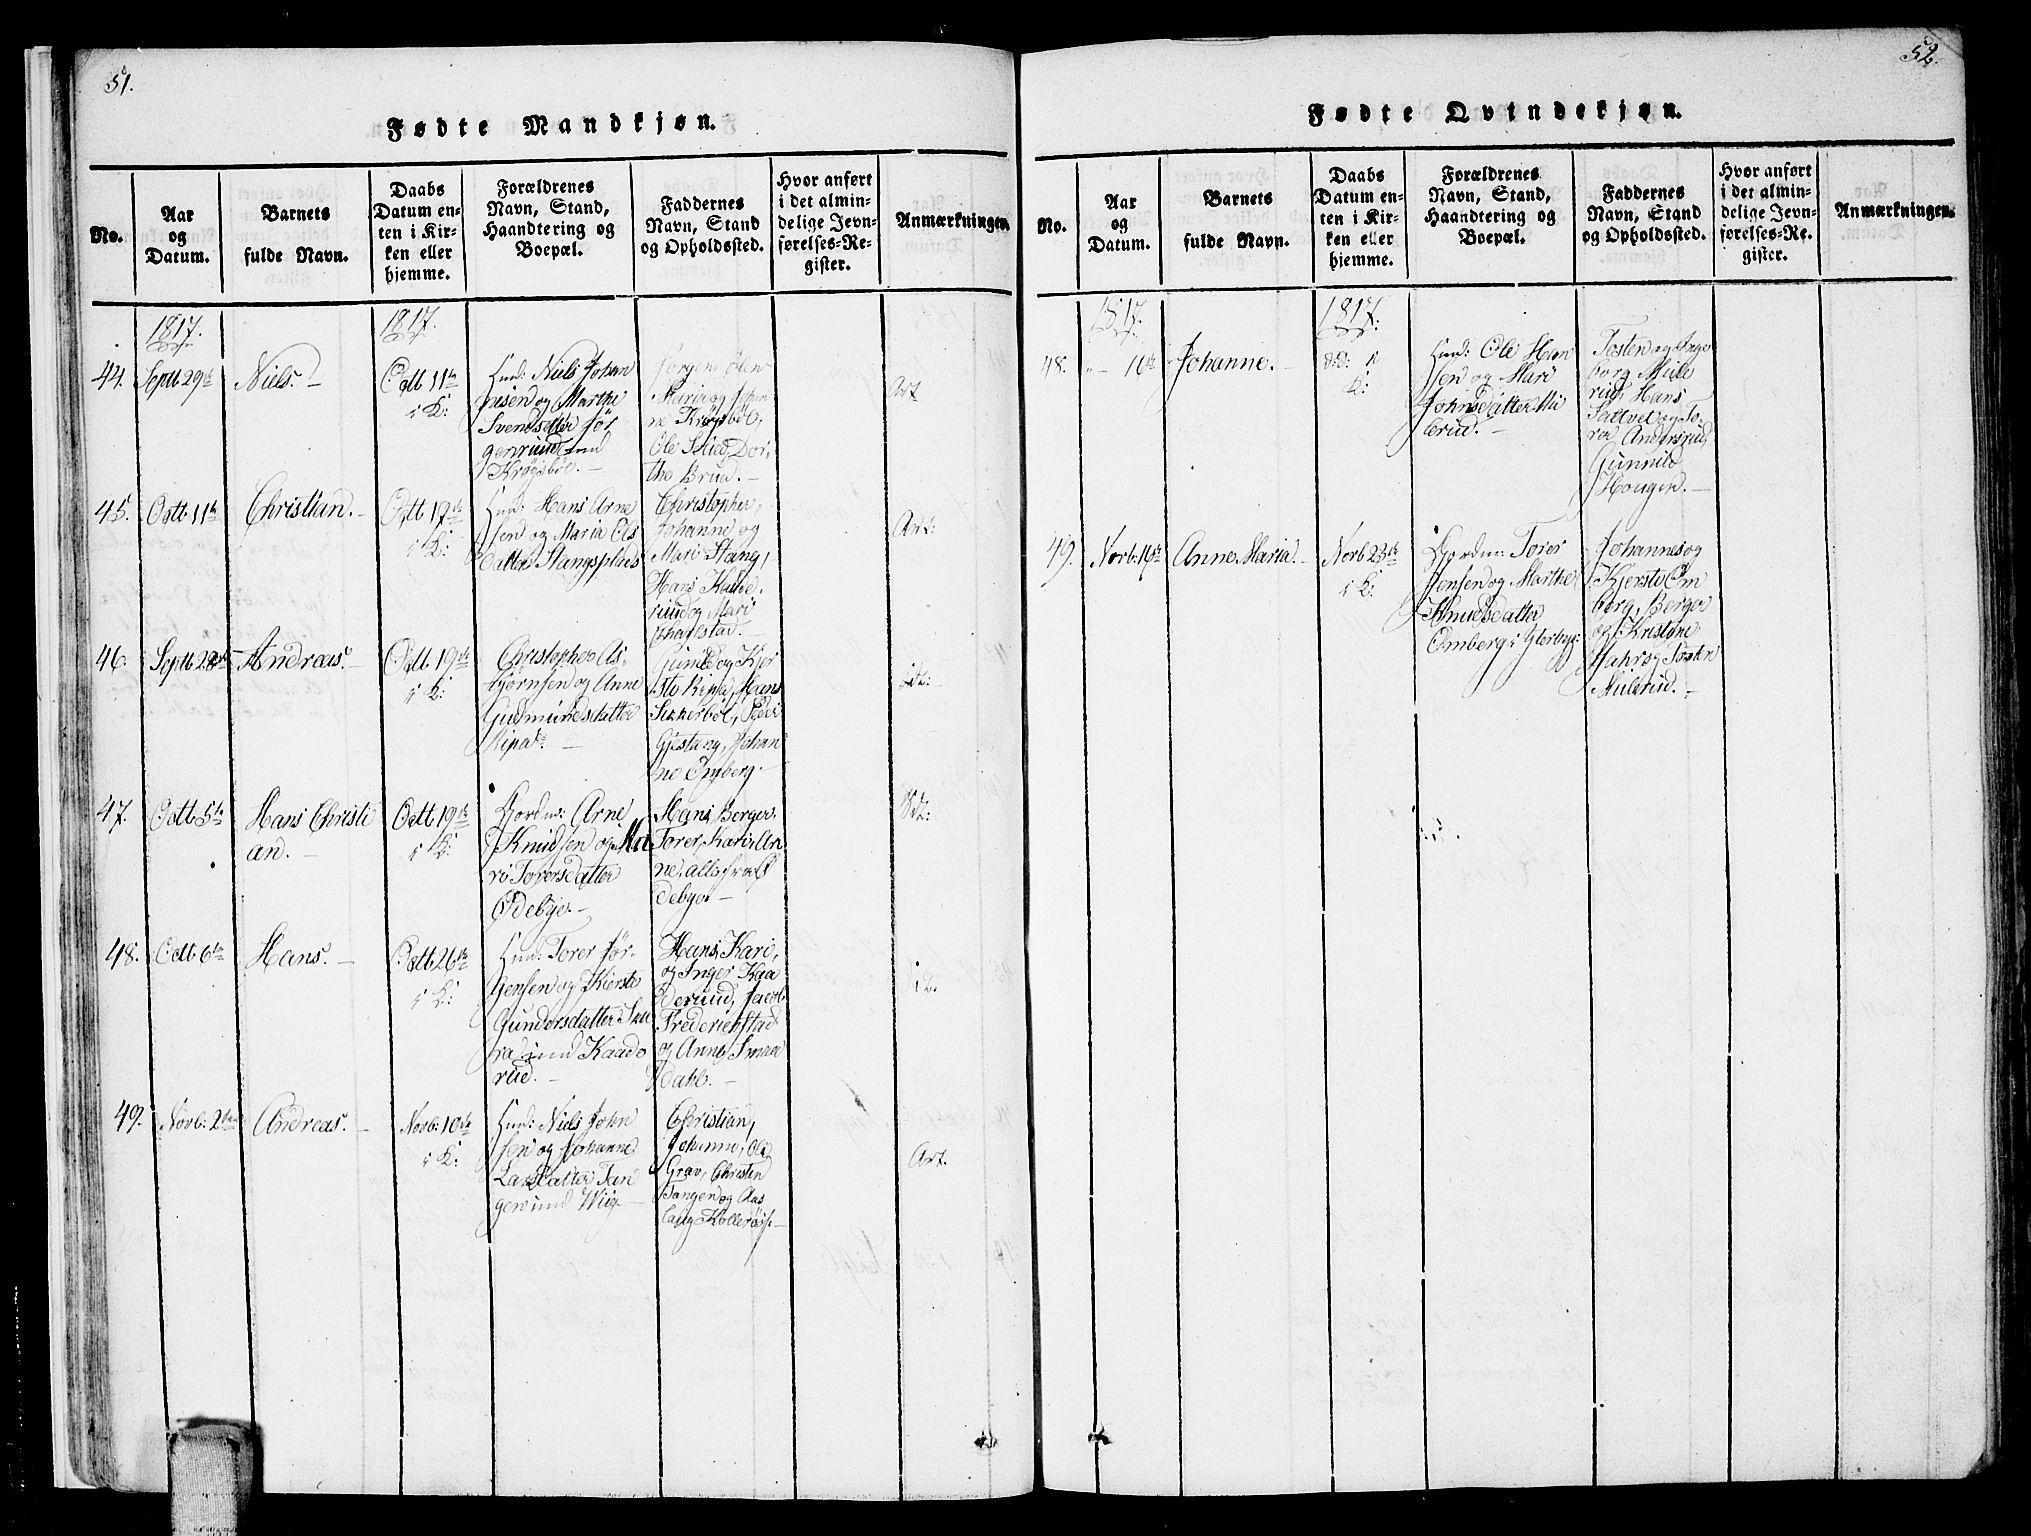 51.
Fødte Mandkjøn.
No.
Aar
og
Datum.
Barnets
fulde Navn.
Daabs
Datum en-
ten i Kir-
ken eller
hjemme.
Forældrenes
Navn, Stand,
Haandtering og
Boepæl.
Faddernes
Navn, Stand
og Opholdssted.
Hvor anført
i det almin-
delige Jevn-
førelses-Re-
gister.
Anmærkninger.
1817.
1817.
44.
Septb 29de
Niels. –
Octb 11te
i K:
Huusm: Niels Johan
nisen og Marthe
Svensdatter Jør
genrud
Krøgsbøl. –
Jørgen Olen
Maria og Johan
ne Krøgsbøl,
Ole Skied, Dor
the Brud. –
Art
45.
Octb 11te
Christian. –
Octb 19de
i K:
Huusm: Hans Arne
sen og Maria Ols
datter Stangsplads
Christopher,
Johanne og
Mari Stang,
Hans Kaase
rud og Mari
Charlstad. –
Art:
46.
Septb 28de
Andreas. –
Octb 19de
i K:
Christopher As-
bjørnsen og Anne
Gudmundsdatter
Kipa. –
Gunild og Kjer
sti Kipa, Hans
Sikkerbøl, Peder
Gjestang, Johan
ne Omberg. –
Idt:
47.
Octb 5te
Hans Christi
an. –
Octb 19de
i K:
Gordm: Arne
Knudsen og Ma
ri Torersdatter
Ødebye. –
Hans, Berger,
Torer, Kari, An
ne, alle fra Ø
debye. –
Idt:
48.
Octb 6te
Hans. –
Octb 26de
i K:
Huusm: Torer Jør-
gensen og Kiersti
Gundersdatter Sku
ra und Kaade
rud. –
Hans, Kari,
og Inger Kaa
derud, Jacob
Frederichstad
og Anne Smaa
dahl. –
Idt.
49.
Novb: 2den
Andreas. –
Novb: 10de
i K:
Huusm: Niels John
sen og Johanne
Larsdatter Tan
gen und Wiig –
Christian,
Johanne, Ole
Grav, Christen
Tangen og Aas
laug Kollerøds. –
Art.
52.
Fødte Qvindekjøn.
No.
Aar
og
Datum.
Barnets
fulde Navn.
Daabs
Datum en-
ten i Kir-
ken eller
hjemme.
Forældrenes
Navn, Stand,
Haandtering og
Boepæl.
Faddernes
Navn, Stand
og Opholdssted.
Hvor anført
i det almin-
delige Jevn-
førelses-Re-
gister.
Anmærkninger.
1817.
1817.
48.
– 16de
Johanne. –
d:d: i
K:
Huusm: Ole Han
sen og Mari
Johnsdatter Mi
lerud. –
Tosten og Inge
borg Mule
rud, Hans
Sattvet og To
ra Andersrud,
Gunnild
Hougen. –
49.
Novb: 16de
Anne Maria. –
Novb 23de
i K:
Gordm: Torer
Jensen og Marthe
Knudsdatter
Omberg i Ytterbye:
Johannes og
Kjersti Om
berg, Berger
og Kristine
Hahrs og Tosten
Mulerud. –